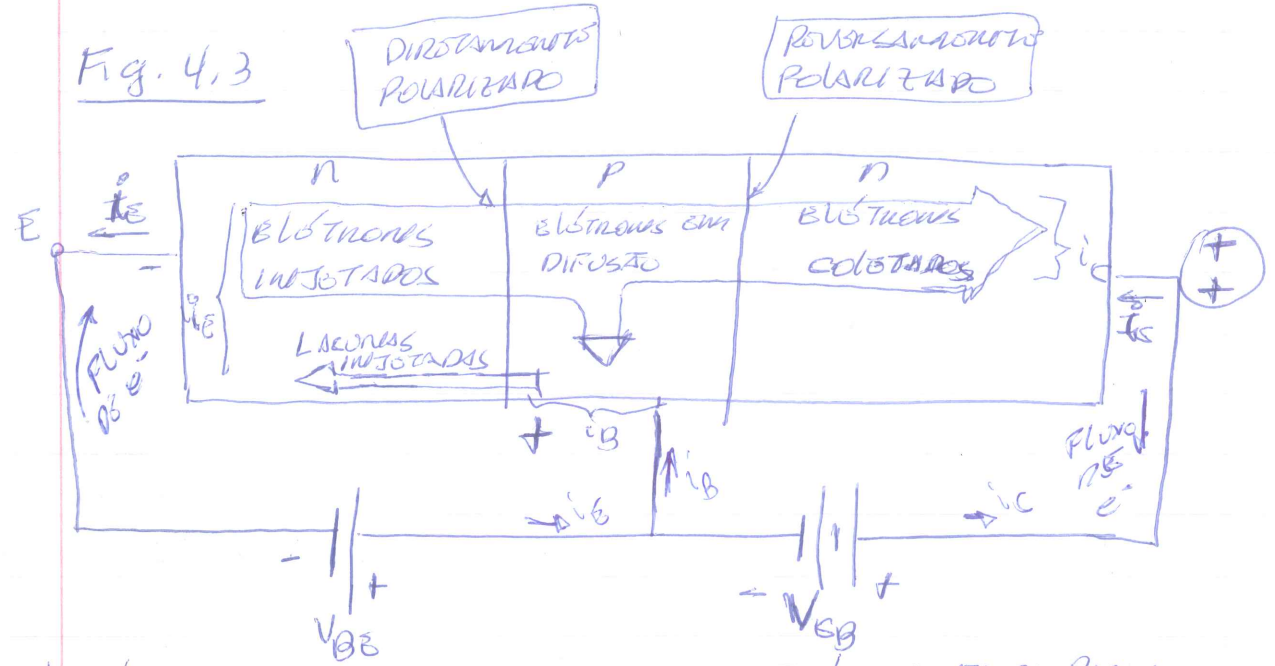 Fig. 4.3
DIRETAMENTE
POLARIZADO
REVERSAMENTE
POLARIZADO
n
p
n
E
iE
-
ELÉTRONS
INJETADOS
ELÉTRONS EM
DIFUSÃO
ELÉTRONS
COLETADOS
iC
+
+
iE
LACUNAS
INJETADAS
FLUXO
DE
e-
+
iB
iB
FLUXO
DE
e-
iE
iC
-
+
VBE
-
+
VCB